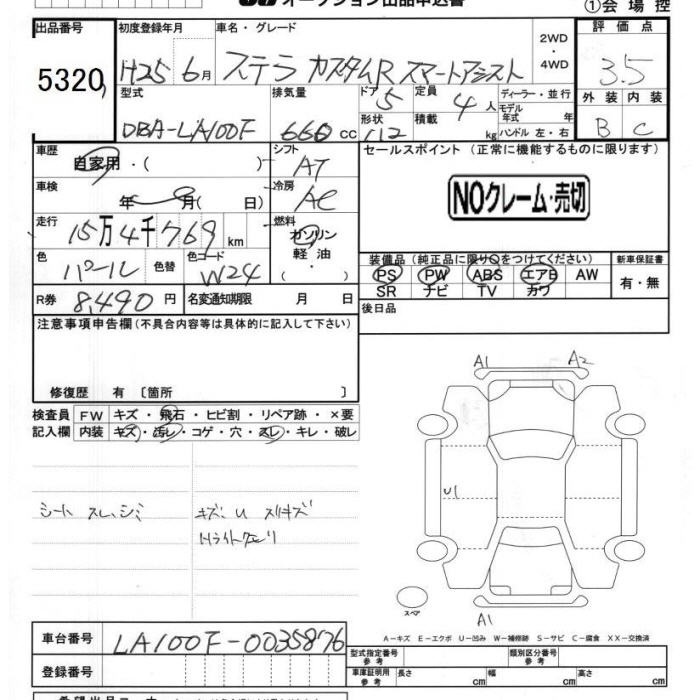 オークション出品申込書
①会場控
出品番号 初度登録年月 車名・グレード 評価点
5320 H25 6月 ステラ カスタムR スマートアシスト 2WD・4WD 3.5
型式 排気量 ドア 5 定員 4人 ディーラー・並行 外装 内装
DBA-LA100F 660cc 形状 積載 kg モデル年式 年式 ハンドル 左・右 B C
車歴 シフト セールスポイント(正常に機能するものに限ります)
自家用・( ) AT
車検 冷房 NOクレーム・売切
年 月( 日) AC
走行 燃料
15万4千769km ガソリン
色 色替 色コード 軽油・( ) 装備品(純正品に限り○をつけてください) 新車保証書
パール W24 PS PW ABS エアB AW 有・無
R券 8,490円 名変通知期限 月 日 SR ナビ TV カワ
注意事項申告欄(不具合内容等は具体的に記入して下さい) 後日品
修復歴 有 〔箇所 〕
A1 A2
検査員 FW キズ・飛石・ヒビ割・リペア跡・×要
記入欄 内装 キズ・汚レ・コゲ・穴・スレ・キレ・破レ
U1
シート スレ、シミ キズ、U スリキズ
スペア
A1
A-キズ E-エクボ U-凹み W-補修跡 S-サビ C-腐食 XX-交換済
車台番号 LA100F-0035876
型式指定番号 参考 類別区分番号 参考
登録番号 車庫証明用 参考 長さ cm 幅 cm 高さ cm